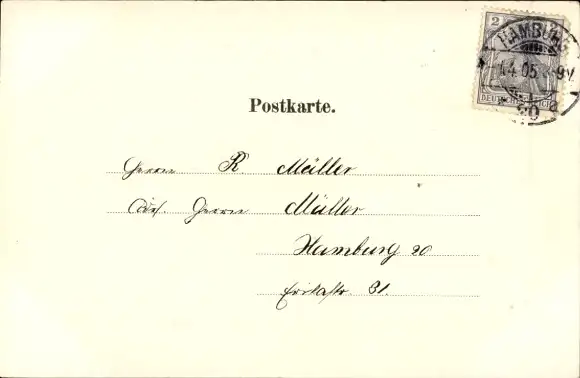 2
HAMBURG
14.05
9V.
DEUTSCHES REICH
* 20
Postkarte.
Herrn R. Müller
Adr. Herrn Müller
Hamburg 20
Erikastr. 81.